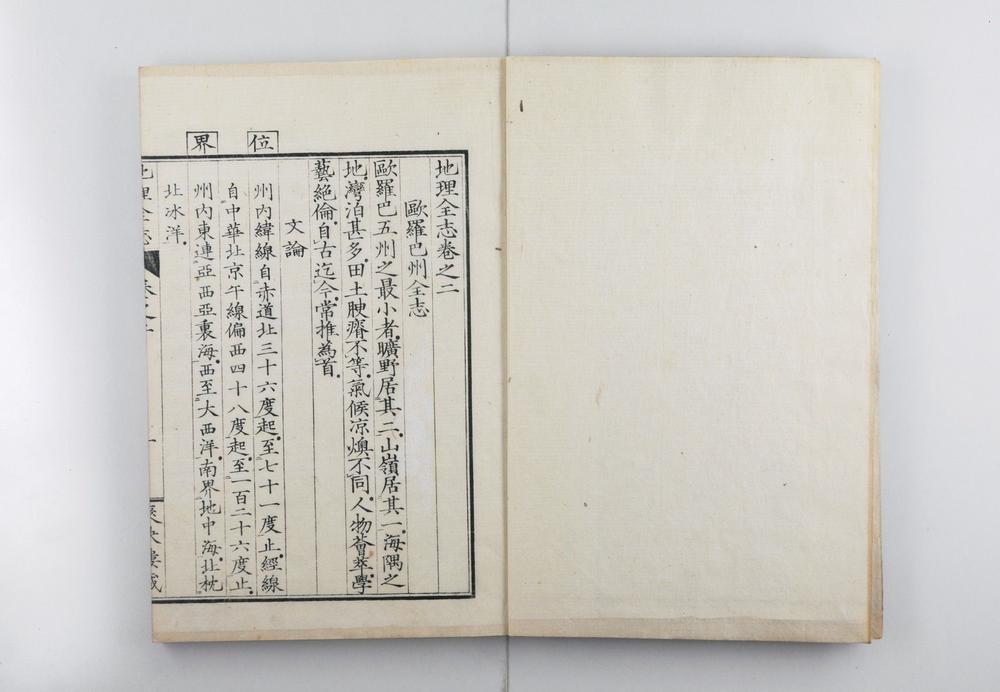 地理全志卷之二
歐羅巴州全志
歐羅巴五州之最小者曠野居其二山嶺居其一海隅之
地灣泊甚多田土腴瘠不等氣候凉燠不同人物薈萃學
藝絕倫自古迄今常推為首
文論
位
州內緯線自赤道北三十六度起至七十一度止經線
自中華北京午線偏西四十八度起至一百二十六度止
界
州內東連亞西亞裏海西至大西洋南界地中海北枕
北冰洋
地理全志
卷之二